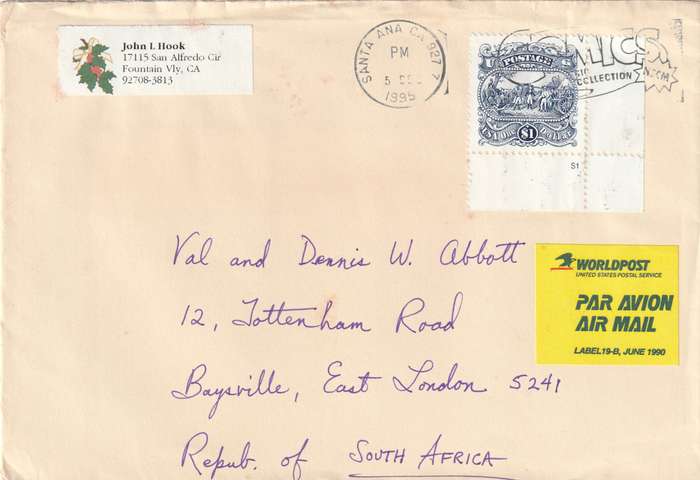 John I. Hook
17115 San Alfredo Cir
Fountain Vly, CA
92708-3813
SANTA ANA CA 927
PM
5 DEC
1995
POSTAGE
$1
COMICS
COLLECTION
S1
Val and Dennis W. Abbott
12, Tottenham Road
Baysville, East London 5241
Repub. of SOUTH AFRICA
WORLDPOST
UNITED STATES POSTAL SERVICE
PAR AVION
AIR MAIL
LABEL19-B, JUNE 1990